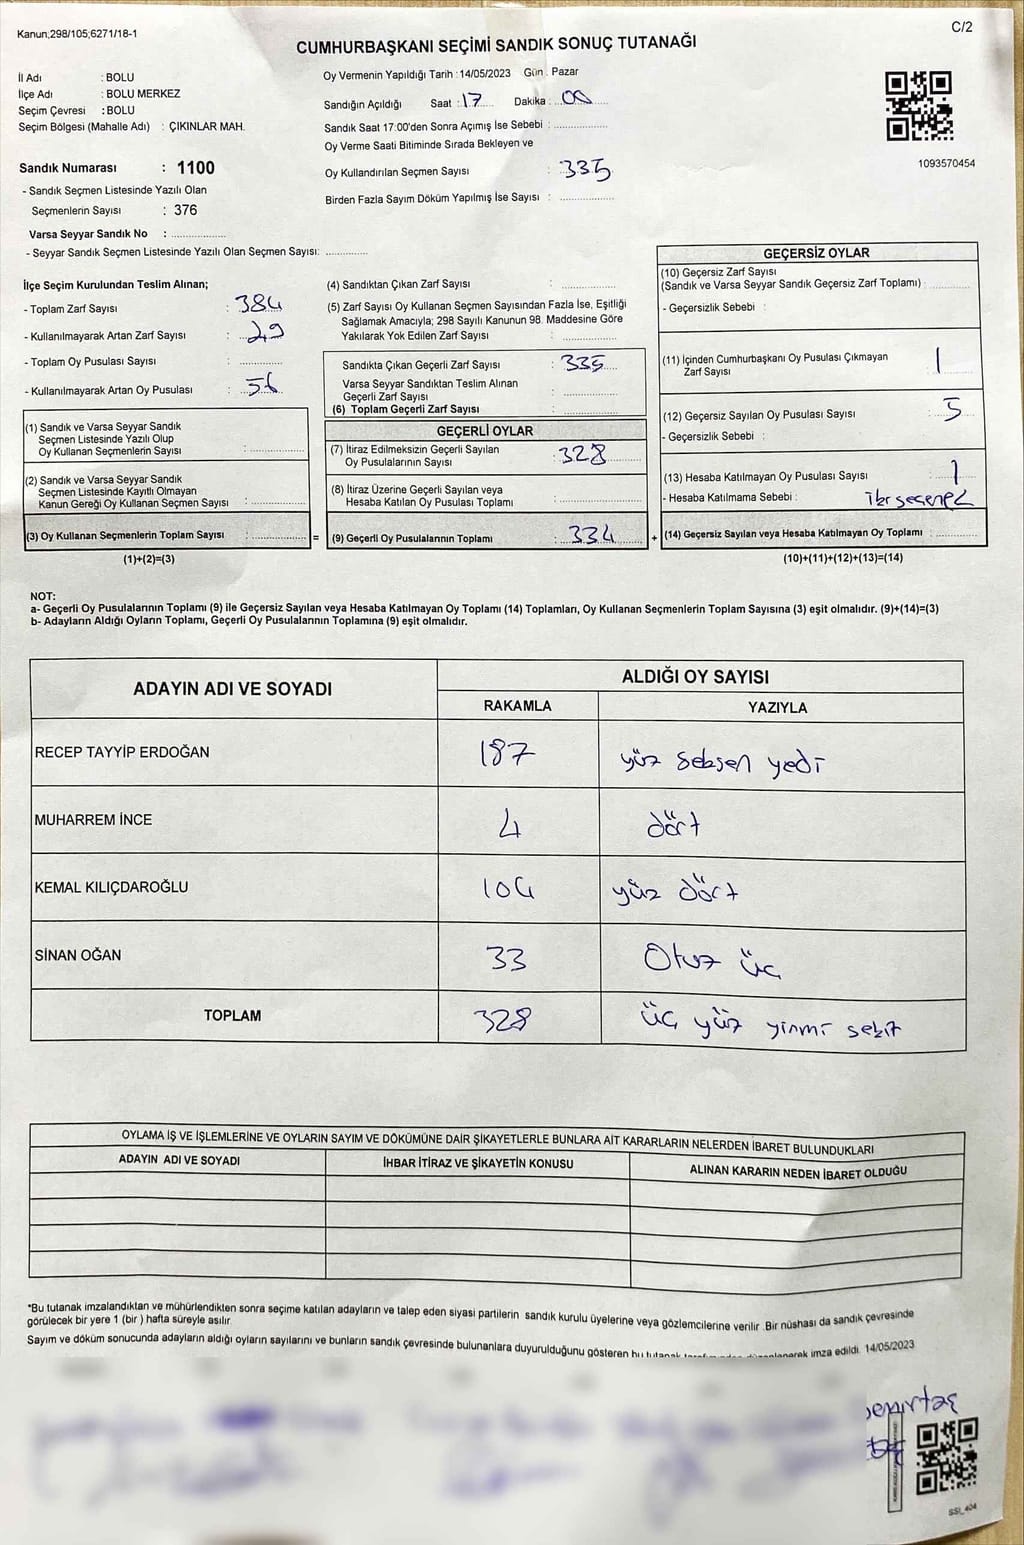 Kanun;298/105;6271/18-1
C/2
CUMHURBAŞKANI SEÇİMİ SANDIK SONUÇ TUTANAĞI
İl Adı : BOLU
İlçe Adı : BOLU MERKEZ
Seçim Çevresi : BOLU
Seçim Bölgesi (Mahalle Adı) : ÇIKINLAR MAH.
Sandık Numarası : 1100
- Sandık Seçmen Listesinde Yazılı Olan
Seçmenlerin Sayısı : 376
Varsa Seyyar Sandık No : ................
- Seyyar Sandık Seçmen Listesinde Yazılı Olan Seçmen Sayısı: ............
Oy Vermenin Yapıldığı Tarih : 14/05/2023 Gün : Pazar
Sandığın Açıldığı Saat : 17 Dakika : 00
Sandık Saat 17:00'den Sonra Açımış İse Sebebi : ................
Oy Verme Saati Bitiminde Sırada Bekleyen ve
Oy Kullandırılan Seçmen Sayısı : 335
Birden Fazla Sayım Döküm Yapılmış İse Sayısı : ................
1093570454
İlçe Seçim Kurulundan Teslim Alınan;
- Toplam Zarf Sayısı : 384
- Kullanılmayarak Artan Zarf Sayısı : 49
- Toplam Oy Pusulası Sayısı : ................
- Kullanılmayarak Artan Oy Pusulası : 56
(1) Sandık ve Varsa Seyyar Sandık
Seçmen Listesinde Yazılı Olup
Oy Kullanan Seçmenlerin Sayısı : ................
(2) Sandık ve Varsa Seyyar Sandık
Seçmen Listesinde Kayıtlı Olmayan
Kanun Gereği Oy Kullanan Seçmen Sayısı : ................
(3) Oy Kullanan Seçmenlerin Toplam Sayısı : ................ =
(1)+(2)=(3)
(4) Sandıktan Çıkan Zarf Sayısı : ................
(5) Zarf Sayısı Oy Kullanan Seçmen Sayısından Fazla İse, Eşitliği
Sağlamak Amacıyla; 298 Sayılı Kanunun 98. Maddesine Göre
Yakılarak Yok Edilen Zarf Sayısı : ................
Sandıkta Çıkan Geçerli Zarf Sayısı : 335
Varsa Seyyar Sandıktan Teslim Alınan
Geçerli Zarf Sayısı : ................
(6) Toplam Geçerli Zarf Sayısı : ................
GEÇERLİ OYLAR
(7) İtiraz Edilmeksizin Geçerli Sayılan
Oy Pusulalarının Sayısı : 328
(8) İtiraz Üzerine Geçerli Sayılan veya
Hesaba Katılan Oy Pusulası Toplamı : ................
(9) Geçerli Oy Pusulalarının Toplamı : 334 +
GEÇERSİZ OYLAR
(10) Geçersiz Zarf Sayısı
(Sandık ve Varsa Seyyar Sandık Geçersiz Zarf Toplamı) : ................
- Geçersizlik Sebebi :
(11) İçinden Cumhurbaşkanı Oy Pusulası Çıkmayan
Zarf Sayısı : 1
(12) Geçersiz Sayılan Oy Pusulası Sayısı : 5
- Geçersizlik Sebebi :
(13) Hesaba Katılmayan Oy Pusulası Sayısı : 1
- Hesaba Katılmama Sebebi :
(14) Geçersiz Sayılan veya Hesaba Katılmayan Oy Toplamı : ................
(10)+(11)+(12)+(13)=(14)
NOT:
a- Geçerli Oy Pusulalarının Toplamı (9) ile Geçersiz Sayılan veya Hesaba Katılmayan Oy Toplamı (14) Toplamları, Oy Kullanan Seçmenlerin Toplam Sayısına (3) eşit olmalıdır. (9)+(14)=(3)
b- Adayların Aldığı Oyların Toplamı, Geçerli Oy Pusulalarının Toplamına (9) eşit olmalıdır.
ADAYIN ADI VE SOYADI ALDIĞI OY SAYISI
RAKAMLA YAZIYLA
RECEP TAYYİP ERDOĞAN 187 yüz seksen yedi
MUHARREM İNCE 4 dört
KEMAL KILIÇDAROĞLU 104 yüz dört
SİNAN OĞAN 33 Otuz üç
TOPLAM 328 üç yüz yirmi sekiz
OYLAMA İŞ VE İŞLEMLERİNE VE OYLARIN SAYIM VE DÖKÜMÜNE DAİR ŞİKAYETLERLE BUNLARA AİT KARARLARIN NELERDEN İBARET BULUNDUKLARI
ADAYIN ADI VE SOYADI İHBAR İTİRAZ VE ŞİKAYETİN KONUSU ALINAN KARARIN NEDEN İBARET OLDUĞU
*Bu tutanak imzalandıktan ve mühürlendikten sonra seçime katılan adayların ve talep eden siyasi partilerin sandık kurulu üyelerine veya gözlemcilerine verilir. Bir nüshası da sandık çevresinde
görülecek bir yere 1 (bir ) hafta süreyle asılır.
Sayım ve döküm sonucunda adayların aldığı oyların sayılarını ve bunların sandık çevresinde bulunanlara duyurulduğunu gösteren bu tutanak imza edildi. 14/05/2023
SSI_404